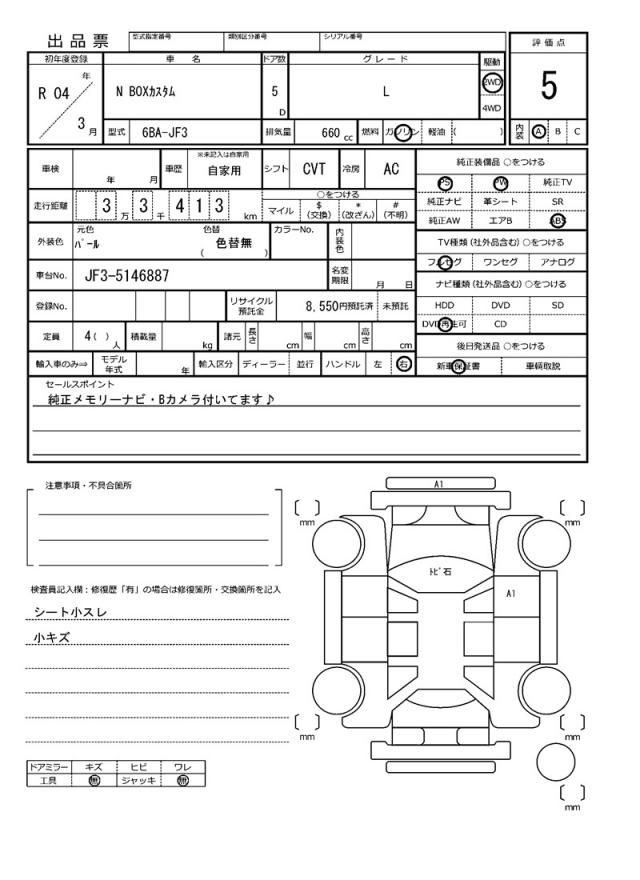 出品票
型式指定番号 類別区分番号 シリアル番号
初年度登録 車名 ドア数 グレード 駆動 評価点
R 04 年 3 月 N BOXカスタム 5 D L 2WD 4WD 5
型式 6BA-JF3 排気量 660 cc 燃料 ガソリン 軽油 ( ) 内装 A B C
車検 年 月 車歴 ※未記入は自家用 自家用 シフト CVT 冷房 AC
走行距離 3 万 3 千 4 1 3 km ○をつける
マイル $ (交換) * (改ざん) # (不明)
外装色 元色 パール 色替 色替無 ( ) カラーNo. 内装色
車台No. JF3-5146887 名変期限 月 日
登録No. リサイクル預託金 8,550円預託済 未預託
定員 4( )人 積載量 kg 諸元 長さ cm 幅 cm 高さ cm
輸入車のみ⇒ モデル年式 年 輸入区分 ディーラー 並行 ハンドル 左 右
純正装備品 ○をつける
PS PW 純正TV
純正ナビ 革シート SR
純正AW エアB ABS
TV種類(社外品含む)○をつける
フルセグ ワンセグ アナログ
ナビ種類(社外品含む)○をつける
HDD DVD SD
DVD再生可 CD
後日発送品 ○をつける
新車保証書 車輌取説
セールスポイント
純正メモリーナビ・Bカメラ付いてます♪
注意事項・不具合箇所
検査員記入欄：修復歴「有」の場合は修復箇所・交換箇所を記入
シート小スレ
小キズ
ドアミラー キズ ヒビ ワレ
工具 無 ジャッキ 無
A1
[ ] mm [ ] mm
トビ石
A1
[ ] mm [ ] mm
[ ] mm